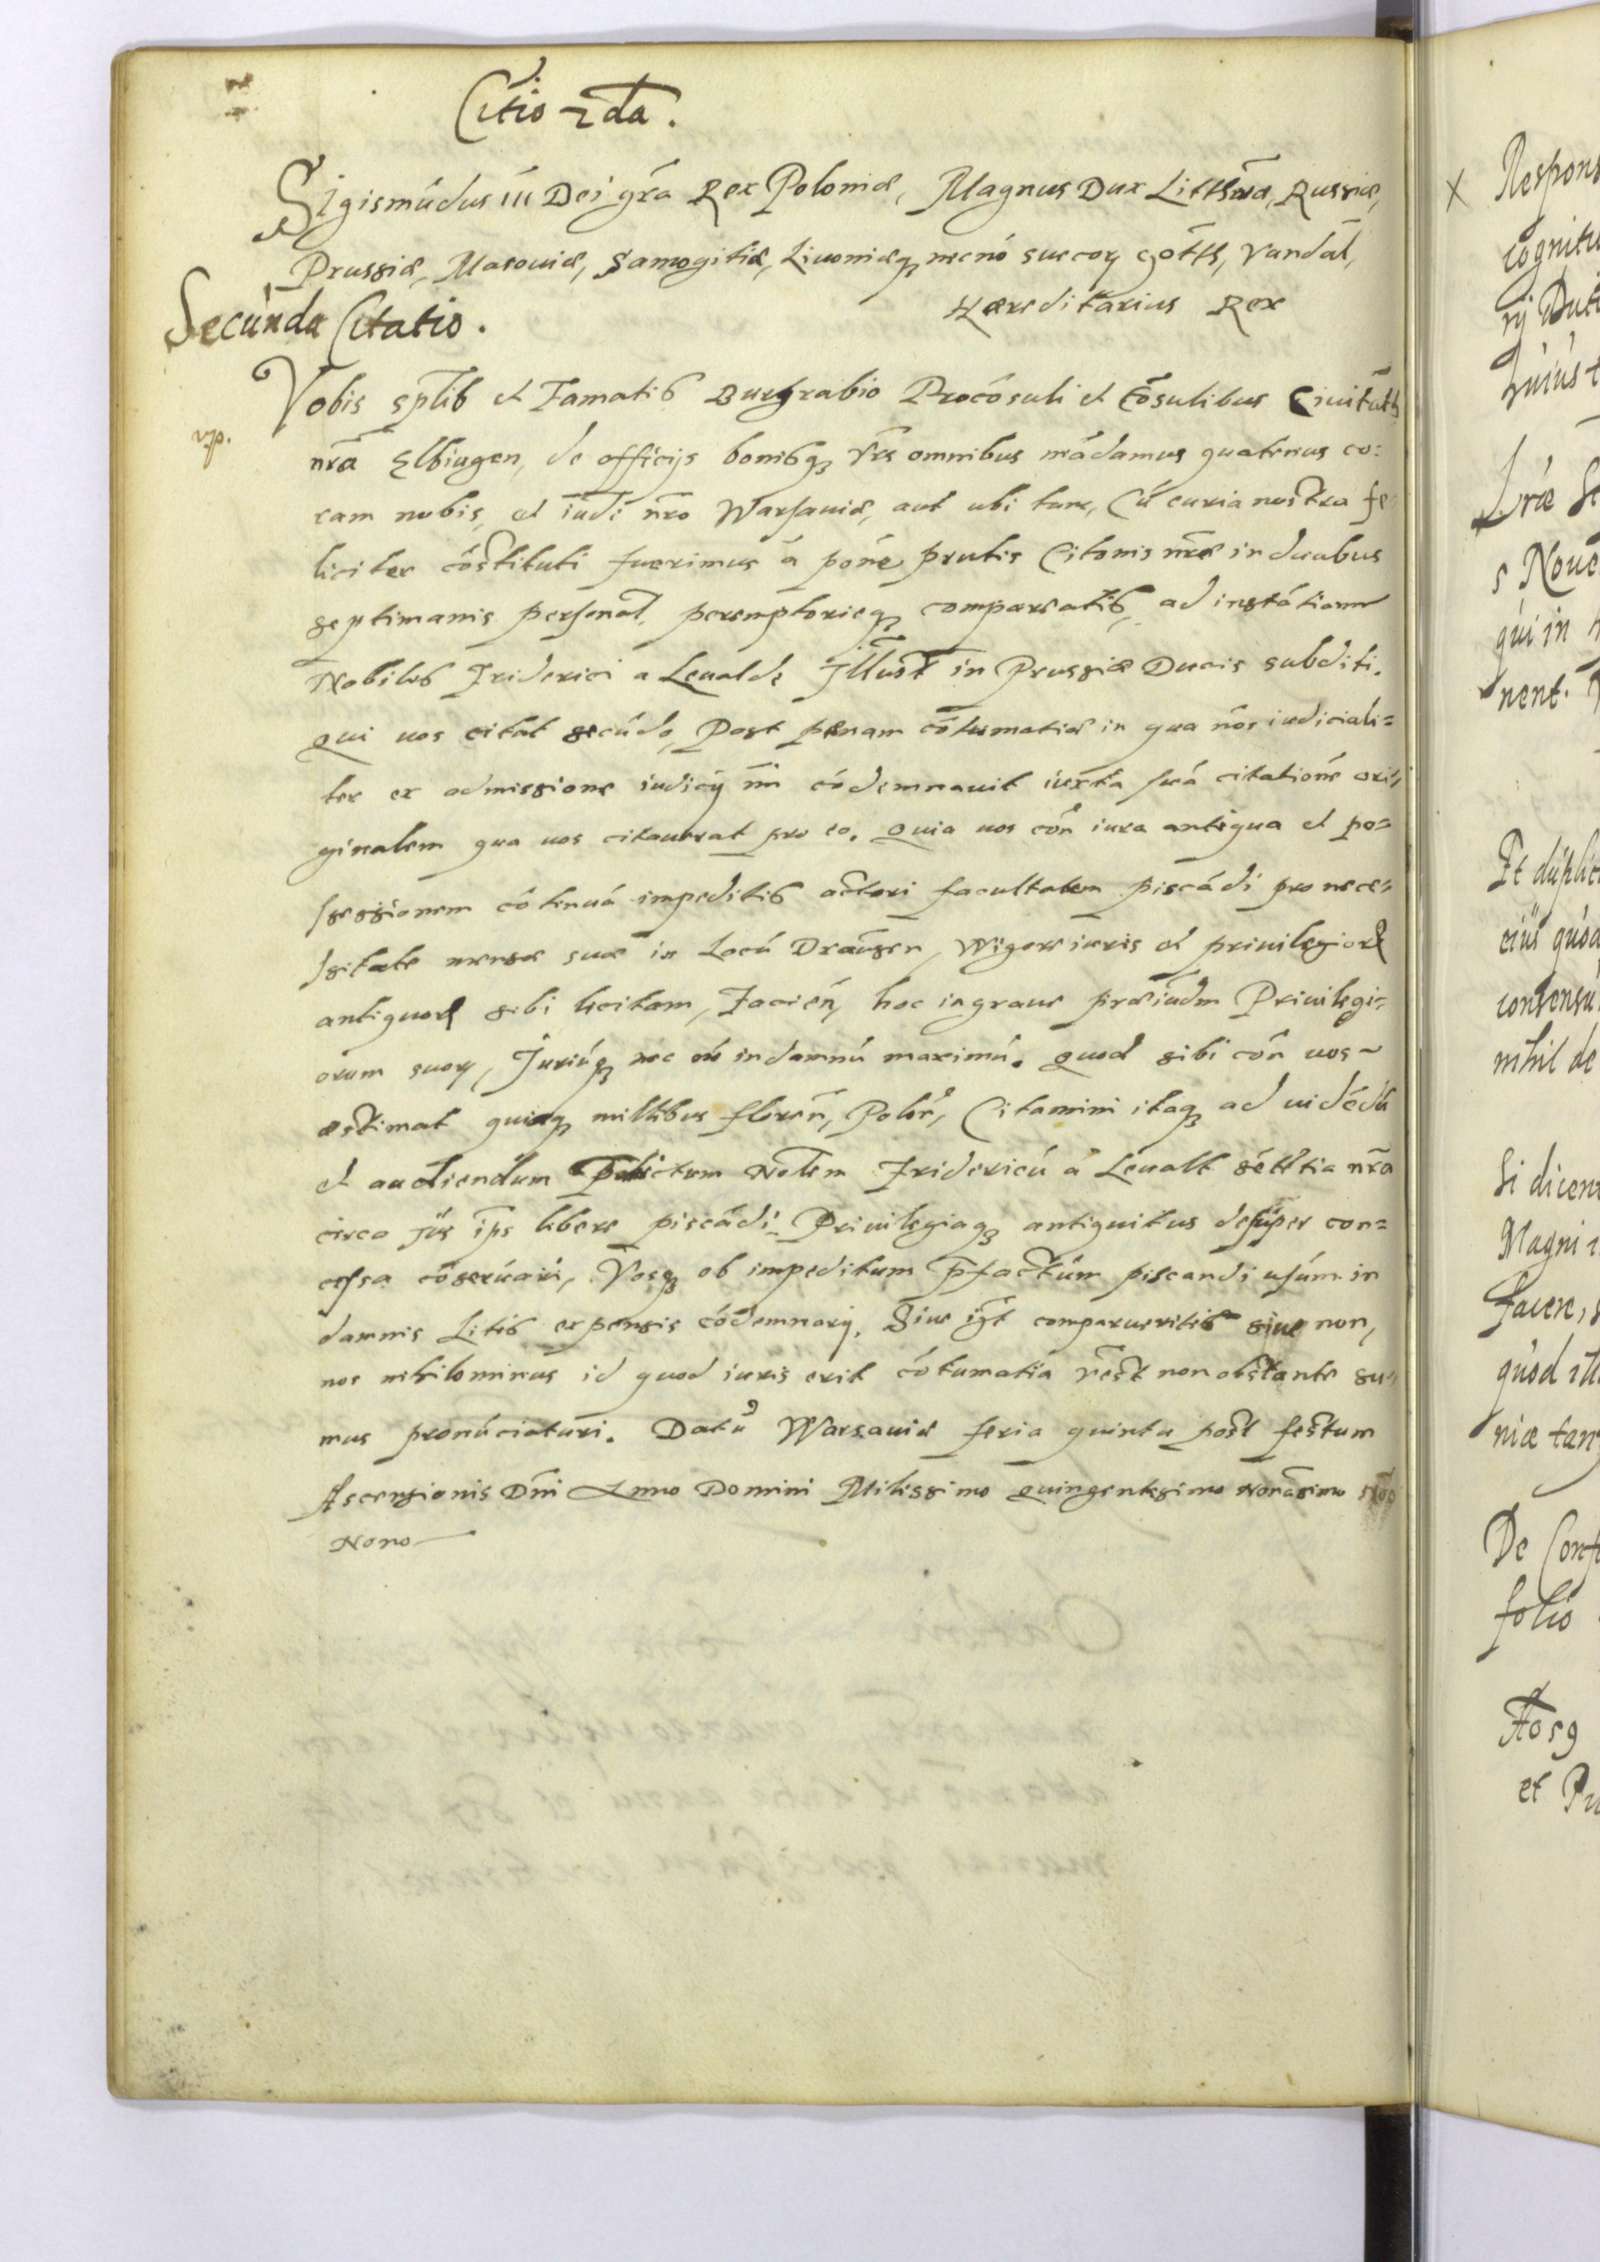 Citio 2da.
Sigismūdus III Dei gr̃a Rex Poloniæ, Magnus Dux Litth̃uæ, Russiæ,
Prussiæ, Masouiæ, Samogitiæ, Liuoniæq; necnō suecoꝝ gotth, Vandal,
Hæreditarius Rex
Secunda Citatio.
Vobis sptlib et Famatis Burgrabio Procōsuli et Cōsulibus Ciuitatis
nr̃a Elbingen, de officijs bonisq; vr̃s omnibus mādamus quatenus co=
ram nobis, et iudi nr̃o Warsauiæ, aut ubi tunc, Cū curia nostra fe
liciter cōstituti fuerimus ā pōne pñtis Citonis nr̃e in duabus
septimanis personal, peremptorieq; compareatis, ad instātiam
Nobilis Friderici a Leualde Illust in Prussiæ Ducis subditi.
Qui uos citat secūdo, Post pænam cōtumatiæ in qua uos iudiciali=
ter ex admissione iudicij nr̃i cōdemnauit iuxta suā citationē ori=
ginalem qua uos citauerat pro eo. Quia uos con̄ iura antiqua et po=
ssessionem cōtenuā impeditis actori facultatem piscādi pro nece=
ssitate mensæ suæ in Locū Drausen, Wigore iuris et priuilegioꝝ
antiquoꝝ sibi licitam, Facien̄, hoc in graue præiudm Priuilegi=
orum suoꝝ, Juriūq; nec nō in damnū maximū. Quod sibi con̄ uos
æstimat quinq; millibus floren̄, Polon̄, Citamini itaq; ad uidēdū
et audiendum Nolem Fridericū a Leualt sētētia nr̃a
circa Jus ips libere piscādi Priuilegiaq; antiquitus desuper con=
cessa cōseruari, Vosq; ob impeditum p̄factum piscandi usum in
damnis Litis expensis cōdemnari, Siue igt comparueritis siue non,
nos nihilominus id quod iuris erit cōtumatia vest non obstante su=
mus pronūciaturi. Datū Warsauiæ feria quinta post festum
Ascensionis Dn̄i Anno Domini Milessimo Quingentesimo Nonagsimo
Nono